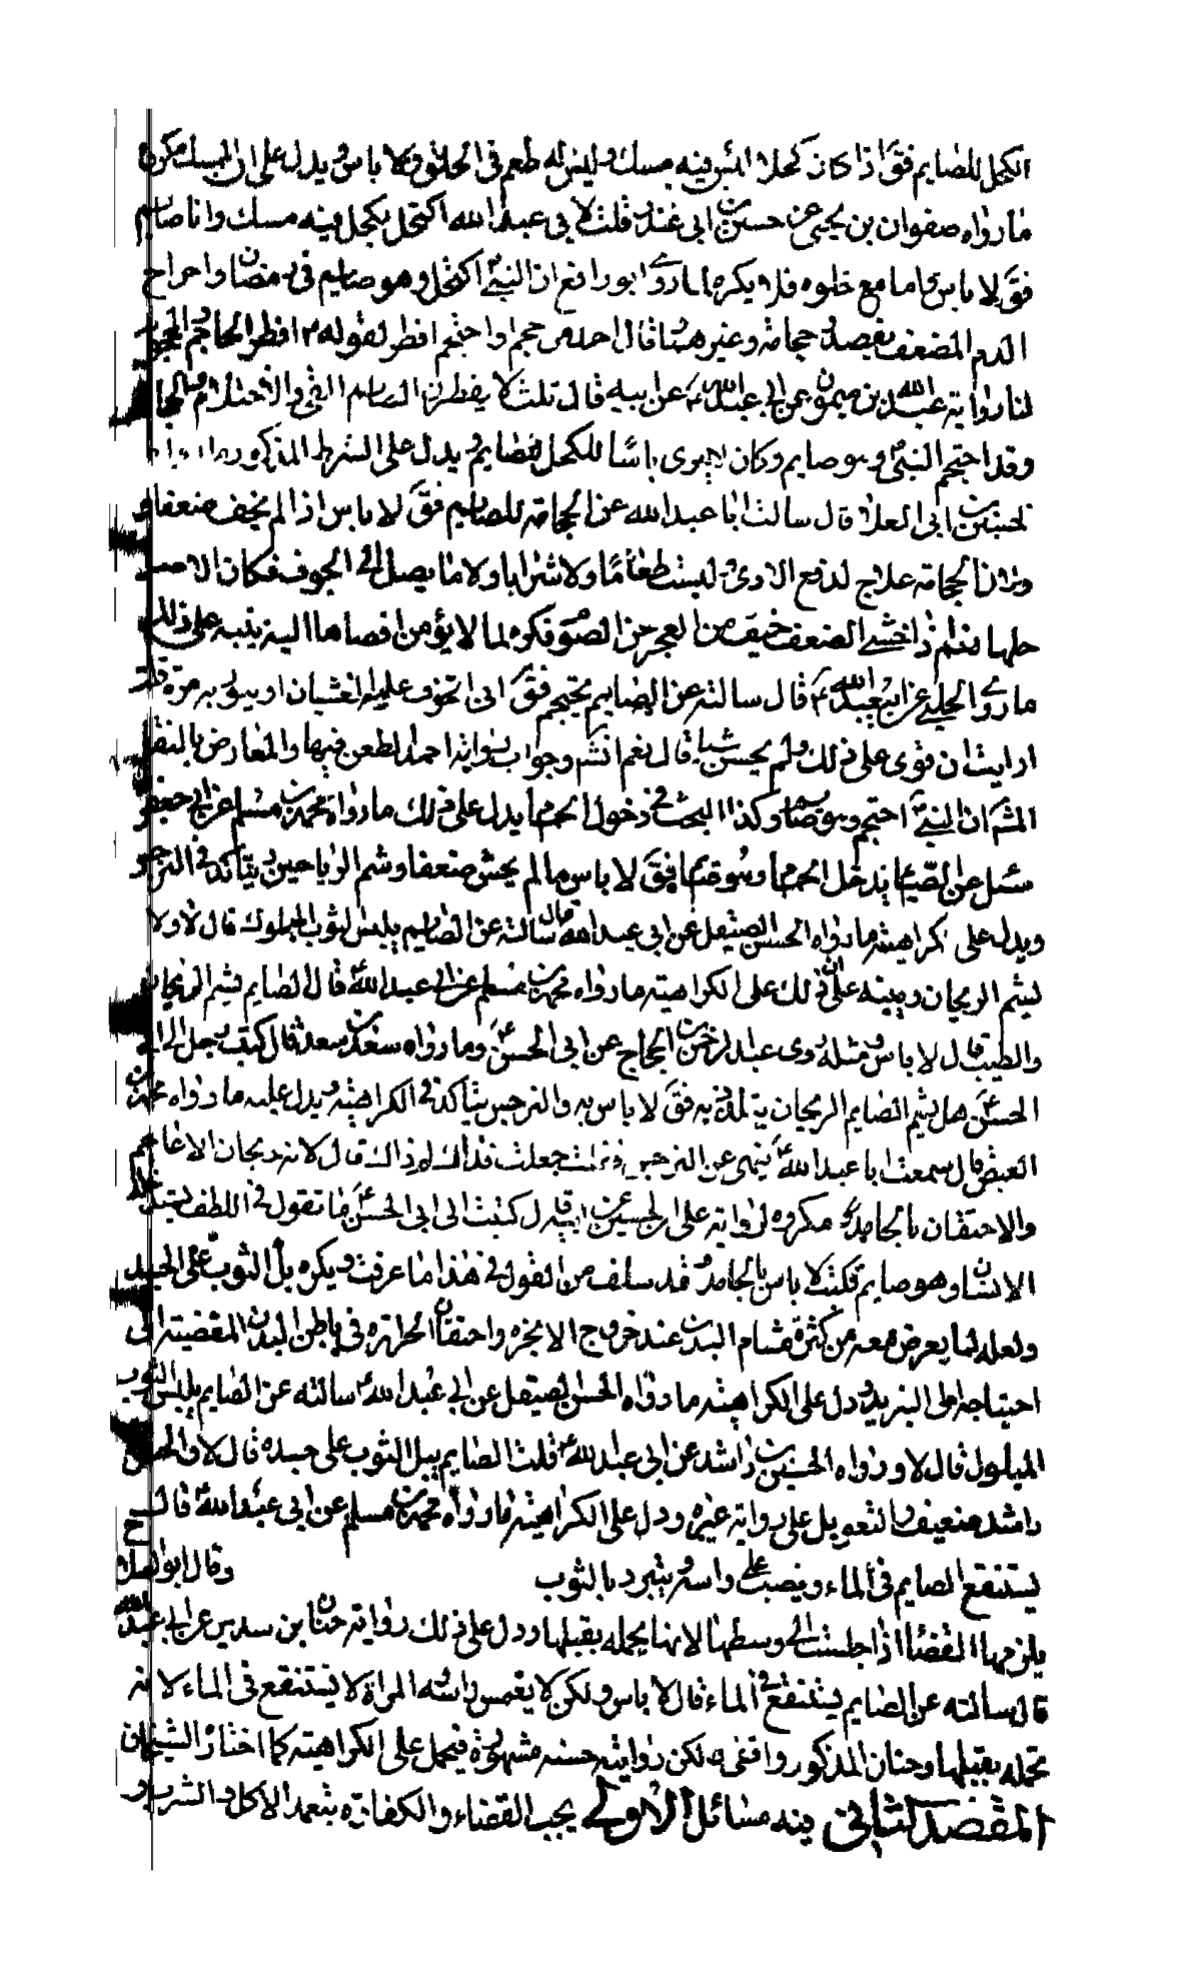 الكحل للصايم فق اذا كان كحلا ليس فيه مسك وليس له طعم في الحلق فلا باس ويدل على ان المسك مكروه
ما رواه صفوان بن يحيى عن حسين بن ابي غندر قلت لابي عبد الله اكتحل بكحل فيه مسك وانا صايم
فق لا باس اما مع خلوه فلا يكره لما روى ابو رافع ان النبي اكتحل وهو صايم في رمضان واخراج
الدم المضعف بفصد وحجامة وغيرهما قال احمد من حجم او احتجم افطر لقوله افطر الحاجم والمحجوم
لنا رواية عبد الله بن ميمون عن ابي عبد الله عن ابيه قال ثلثة لا يفطرن الصايم القئ والاحتلام والحجامة
وقد احتجم النبي وهو صايم وكان لا يرى باسا للكحل للصايم ويدل على الشرط المذكور
لحسين بن ابي العلا قال سالت ابا عبد الله عن الحجامة للصايم فق لا باس اذا لم يخف ضعفا و
ولان الحجامة علاج لدفع الاذى ليست طعاما ولا شرابا ولا ما يصل الى الجوف فكان الاصل
حلها نعم اذا خشي الضعف خيف من العجز عن الصوم فكره لما لا يؤمن افضاها اليه ينبه على ذلك
ما روى الحلبي عن ابي عبد الله قال سالته عن الصايم يحتجم فق اني اتخوف عليه الغشيان او يثور به مرة قلت
ارايت ان قوى على ذلك ولم يخش شيا قال نعم انشا وجواب رواية احمد الطعن فيها والمعارض بالنقل
المش ان النبي احتجم وهو صايم وكذا البحث في دخول الحمام يدل على ذلك ما رواه محمد بن مسلم عن ابي جعفر
سئل عن الصيام يدخل الحمام وهو صايم فق لا باس ما لم يخش ضعفا وشم الرياحين ويتاكد في النرجس
ويدل على كراهيته ما رواه الحسن الصيقل عن ابي عبد الله قال سالته عن الصايم يلبس الثوب المبلول قال لا ولا
يشم الريحان وينبه على ان ذلك على الكراهية ما رواه محمد بن مسلم عن ابي عبد الله قال الصايم يشم الريحان
والطيب قال لا باس ومثله روى عبد الرحمن بن الحجاج عن ابي الحسن وما رواه سعد بن سعد قال كتب رجل الى ابي
الحسن هل يشم الصايم الريحان يتلذذ به فق لا باس به والنرجس يتاكد في الكراهية ويدل عليه ما رواه محمد بن
العيض قال سمعت ابا عبد الله ينهى عن النرجس فقلت جعلت فداك لم ذاك قال لانه ريحان الاعاجم
والاحتقان بالجامد مكروه لرواية علي بن الحسين عن ابيه قال كتبت الى ابي الحسن ما تقول في اللطف يستدخله
الانسان وهو صايم فكتب لا باس بالجامد وقد سلف من القول في هذا ما عرفت ويكره بل الثوب على الجسد
ولعله لما يعرض معه من كثرة مسام البدن عند خروج الابخرة واحتقان الحرارة في باطن البدن المقضية الى
احتياجه الى التبريد ودل على الكراهية ما رواه الحسن الصيقل عن ابي عبد الله سالته عن الصايم يلبس الثوب
المبلول قال لا ورواه الحسين بن راشد عن ابي عبد الله قلت الصايم يبل الثوب على جسده قال لا والحسن
راشد ضعيف والتعويل على رواية غيره ودل على الكراهية ما رواه محمد بن مسلم عن ابي عبد الله قال
يستنقع الصايم في الماء ويصب على راسه ويتبرد بالثوب وقال ابو الصلاح
يلزمها القضا اذا جلست الى وسطها لانها يحمله بقبلها ودل على ذلك رواية حنان بن سدير عن ابي عبد الله
قال سالته عن الصايم يستنقع في الماء قال لا باس ولكن لا يغمس راسه المراة لا يستنقع في الماء لانه
تحمله بقبلها وحنان المذكور واقفي لكن روايته حسنه مشهورة فيحمل على الكراهية كما اختاره الشيخان
المقصد الثاني فيه مسائل الاولى يجب القضاء والكفارة بتعمد الاكل والشرب و